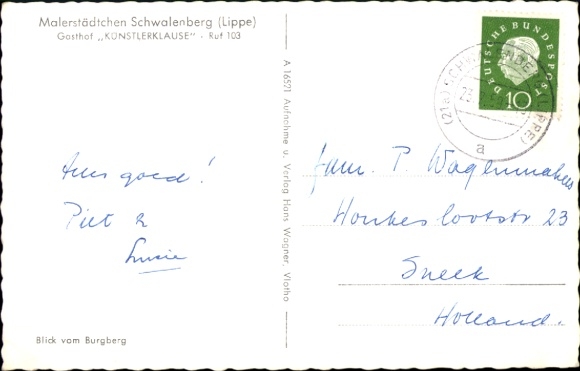 Malerstädtchen Schwalenberg (Lippe)
Gasthof „KÜNSTLERKLAUSE" - Ruf 103
A 16521 Aufnahme u. Verlag Hans Wagner, Vlotho
DEUTSCHE BUNDESPOST
10
(21a) SCHWALENBERG (LIPPE)
a
Alles goed!
Piet &
Lucie
fam. P. Wagenmakers
Honkeslootstr 23
Sneek
Holland.
Blick vom Burgberg